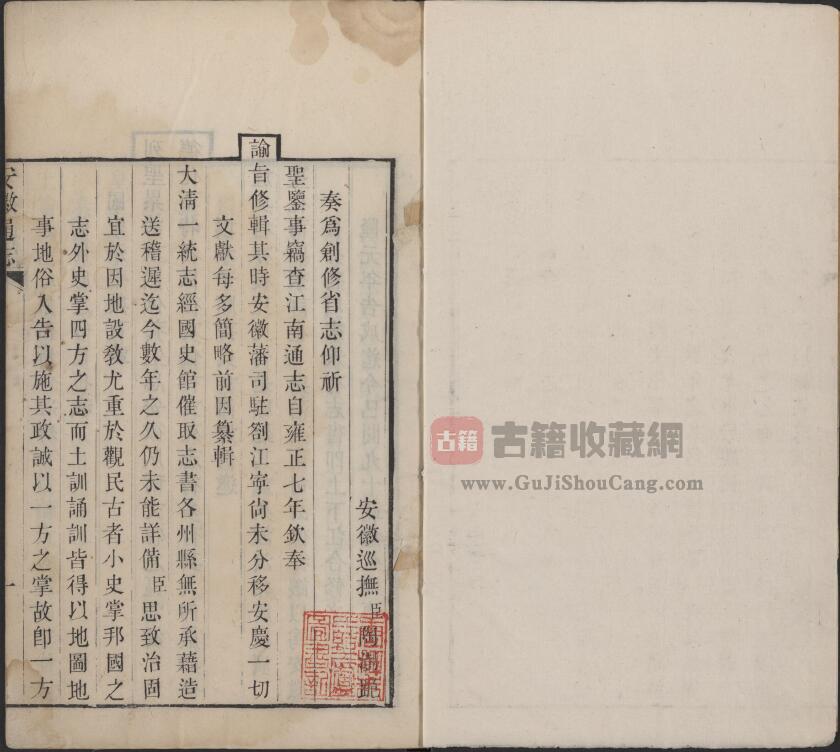 安徽巡撫臣陶澍跪
奏爲創修省志仰祈
聖鑒事竊查江南通志自雍正七年欽奉
諭旨修輯其時安徽藩司駐劄江寧尙未分移安慶一切
文獻每多簡略前因纂輯
大清一統志經國史館催取志書各州縣無所承藉造
送稽遲迄今數年之久仍未能詳備臣思致治固
宜於因地設敎尤重於觀民古者小史掌邦國之
志外史掌四方之志而土訓誦訓皆得以地圖地
事地俗入告以施其政誠以一方之掌故卽一方
安徽通志
一
古籍
古籍收藏網
www.GuJiShouCang.com